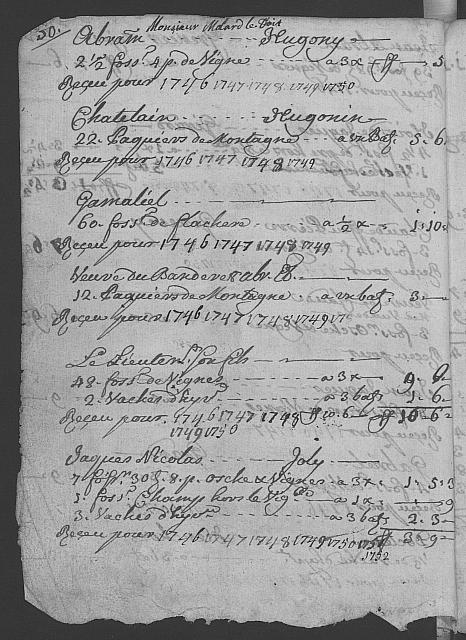 50.
Monsieur Mdard le Doit
Abram - - - Hugony
2 ½ foss. 4 p. de Vigne - - - a 3 x ff 5
Reçeu pour 1746 1747 1748 1749 1750
Chatelain - - - Hugonin
22 Paquiers de Montagne - - - a 1 x Baſ. 5. 6.
Reçeu pour 1746 1747 1748 1749
Gamaliel
60. foss. de flachere - - - a ½ x - 1. 10.
Reçeu pour 1746 1747 1748 1749
Veuve du Banderet
12. Paquiers de Montagne a baſ. 3.
Reçeu pour 1746 1747 1748 1749 17
Le Lieuten. son fils
48. foss. de Vignes - - - a 3 x 9
2 Vaches d'hyv. - - - a 3 baſ. 1. 6
Reçeu pour 1746 1747 1748 10 6 ff 10 6
1749 1750
Jaques Nicolas - - - Joly
7 foss. 30 8. p. osche & Vignes - a 3 x - 1. 5. 3
1. foss. Champ hors le Vig. - - a 1 x - 9
3. Vaches d'hyv. - - - a 3 baſ. 2. 3
Reçeu pour 1746 1747 1748 1749 1750 1751 ff 3. 9
1752